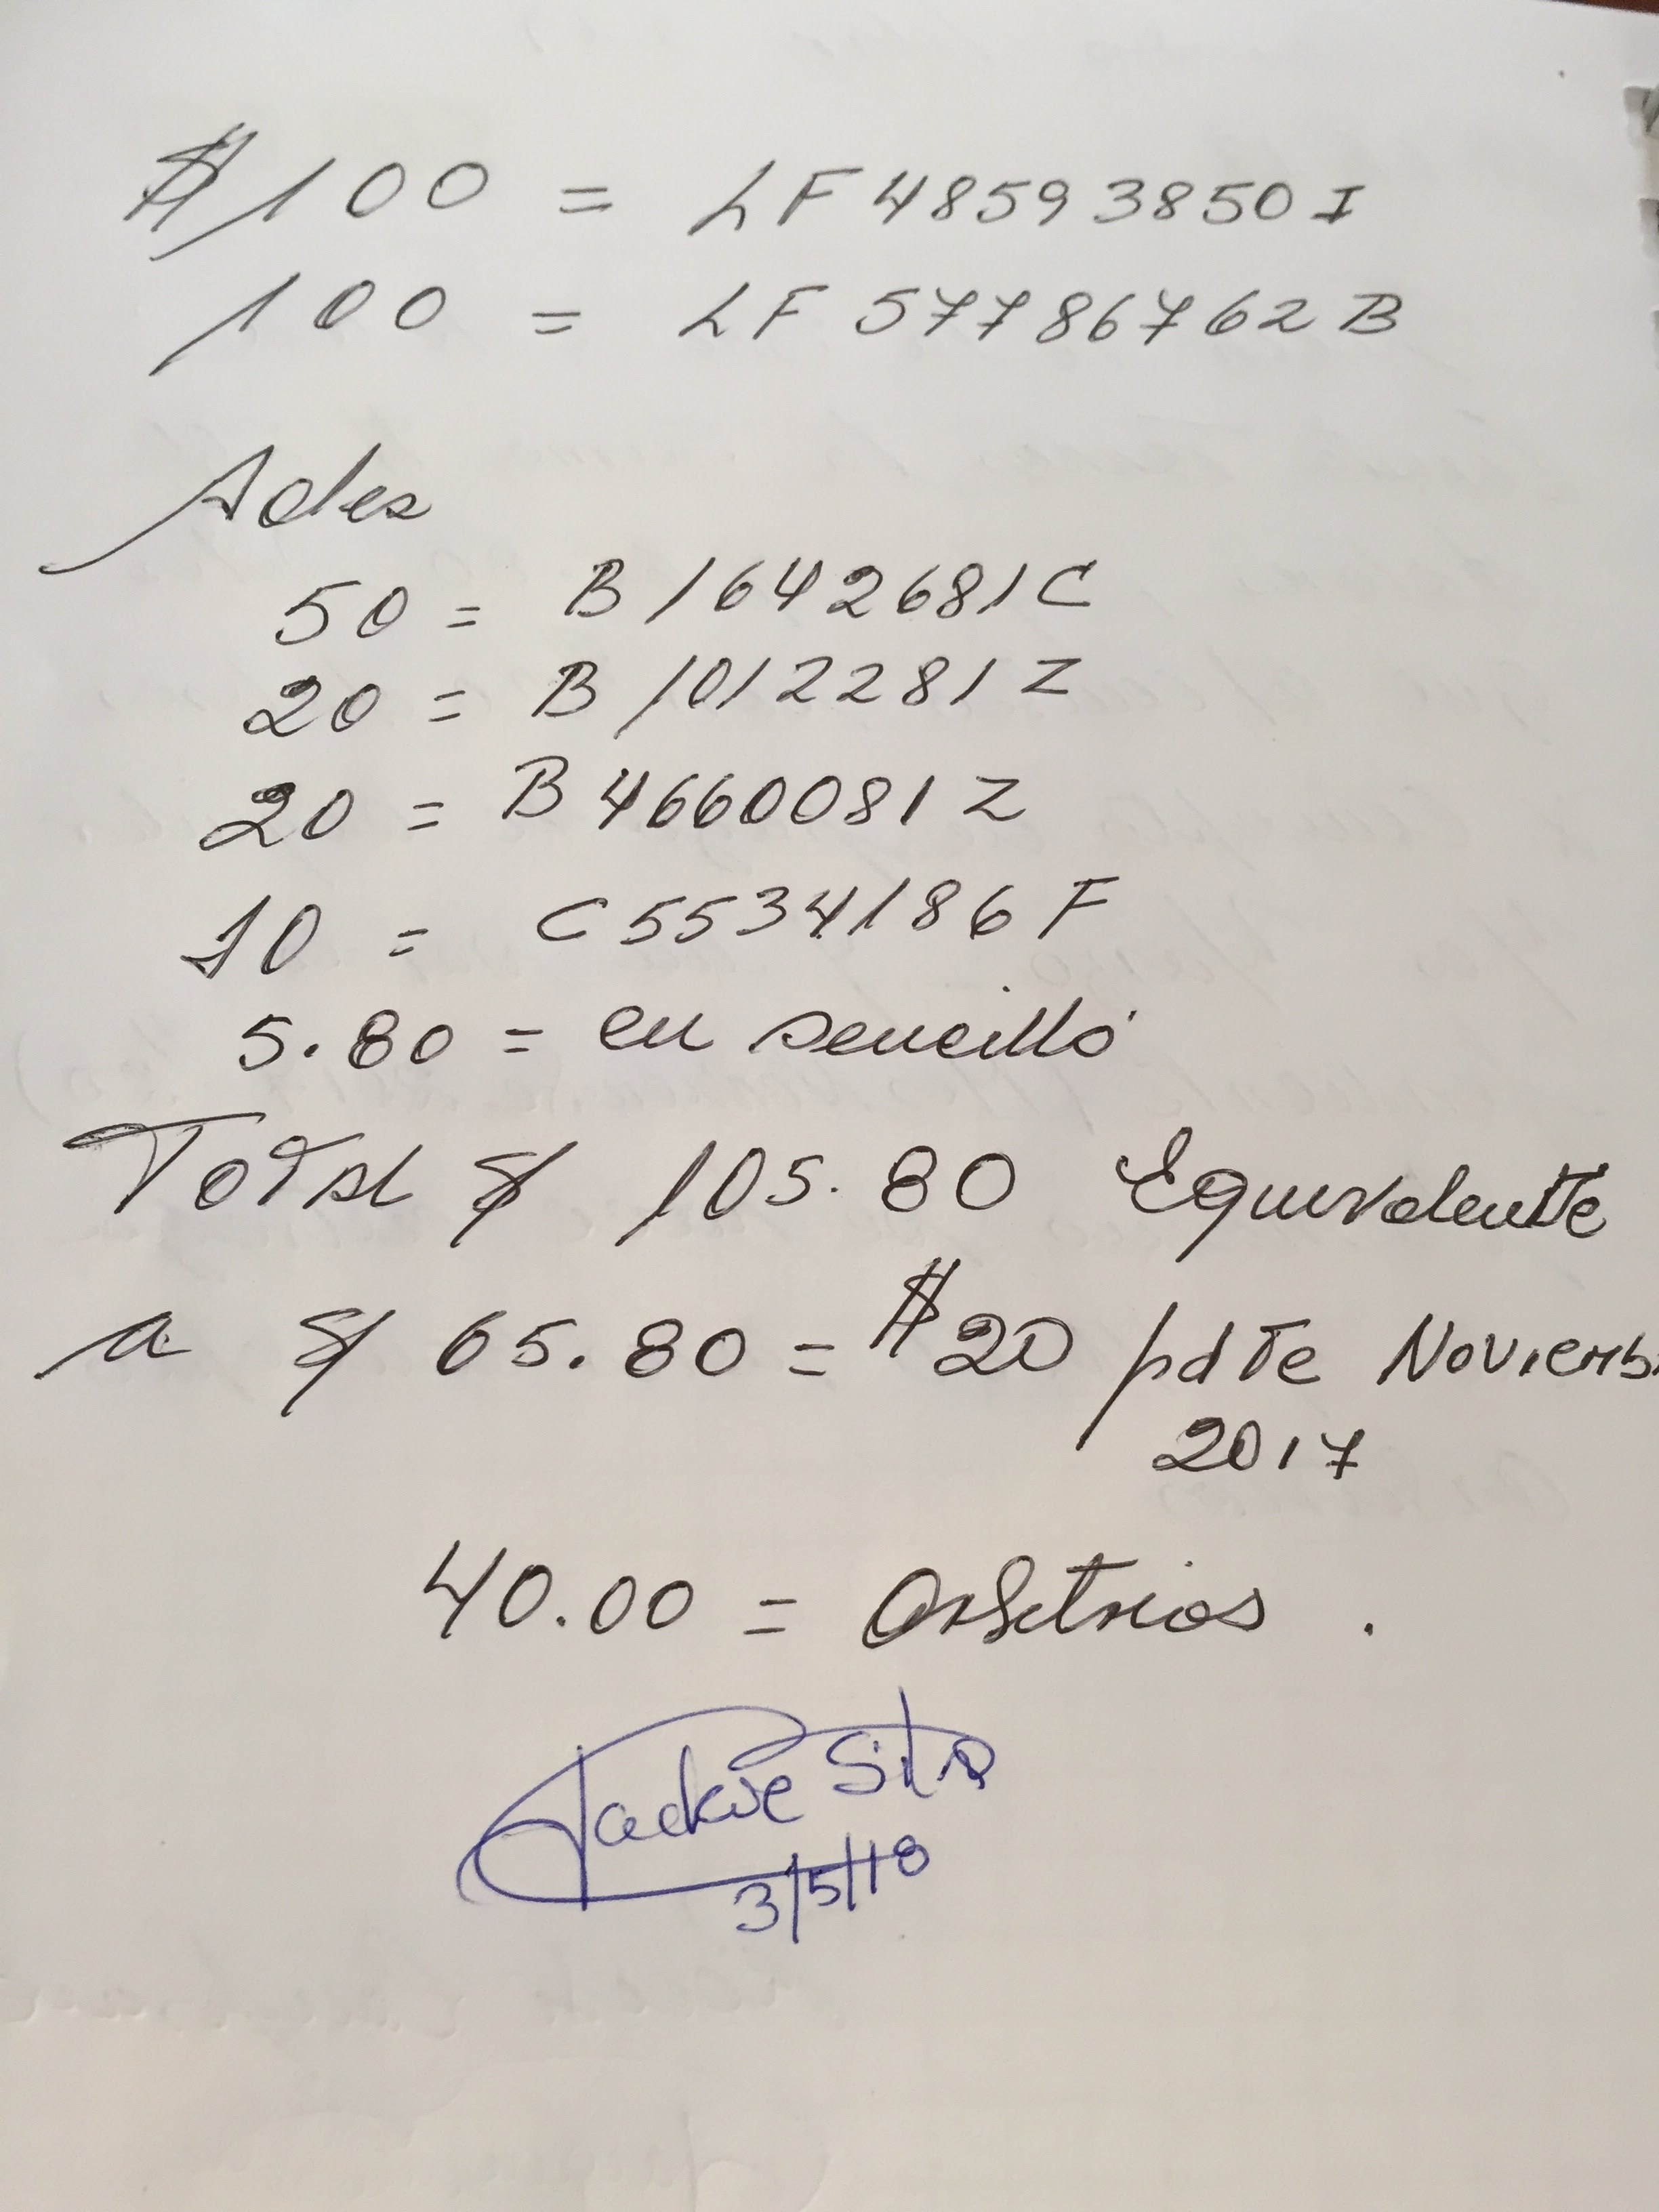 $ 100 = LF 48593850 I
100 = LF 57786762 B
Ades
50 = B 1642681 C
20 = B 1012281 Z
20 = B 4660081 Z
10 = C 5534186 F
5.80 = en sencillo
Total S/ 105.80 Equivalente
a S/ 65.80 = $20 pdte Noviemb
2017
40.00 = Arbitrios.
Jackie
3/5/18